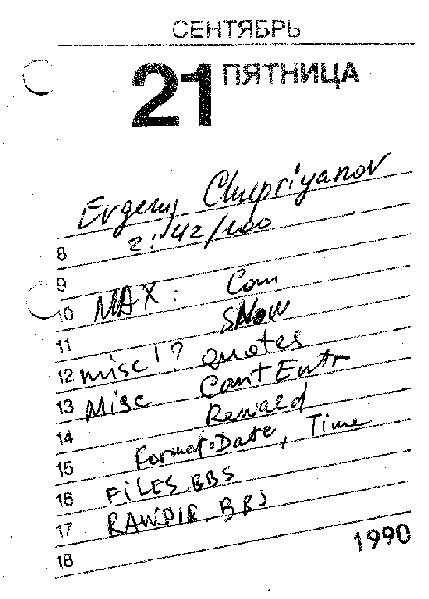 СЕНТЯБРЬ
21 ПЯТНИЦА
Evgeny Chupriyanov
8 2:42/100
9
10 MAX: Com
11 SNow
12 misc!? quotes
13 Misc Cont Entr
14
15 Format: Date, Time
16 FILES BBS
17 RAWDIR BBS
18
1990